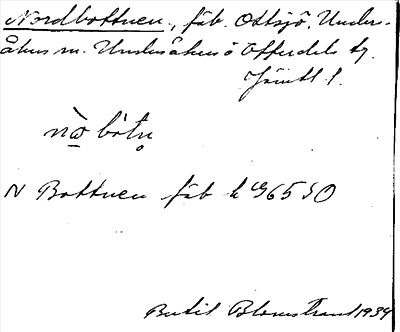 Nordbottnen, fäb. Ottsjö. Under-
åkers sn. Undersåkers o Offerdals tg.
Jämtl. l.
N Bottnen fäb k
Bertil Blomstrand 1934